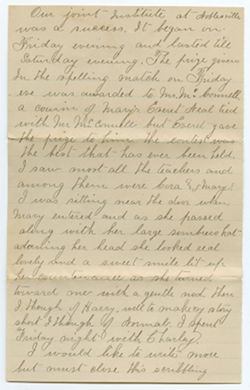 Our joint Institute at Noblesville
was a success. It began on
Friday evening and lasted till
Saturday evening. The prize given
in the spelling match on Friday
eve was awarded to Mr. McConnell
a cousin of Mary's Neal tied
with Mr. McConnell but gave
the prize to him the contest was
the best that has ever been held.
I saw most all the teachers and
among them were Cora & Mary.
I was sitting near the door when
Mary entered and as she passed
along with her large sombrero hat
adorning her head she looked real
lovely and a sweet smile lit up
her countenance as she turned
toward one with a gentle nod then
I though of Harry, well to make a story
short I though of Normal. I spent
Friday night with Charley.
I would like to write more
but must close this scribbling